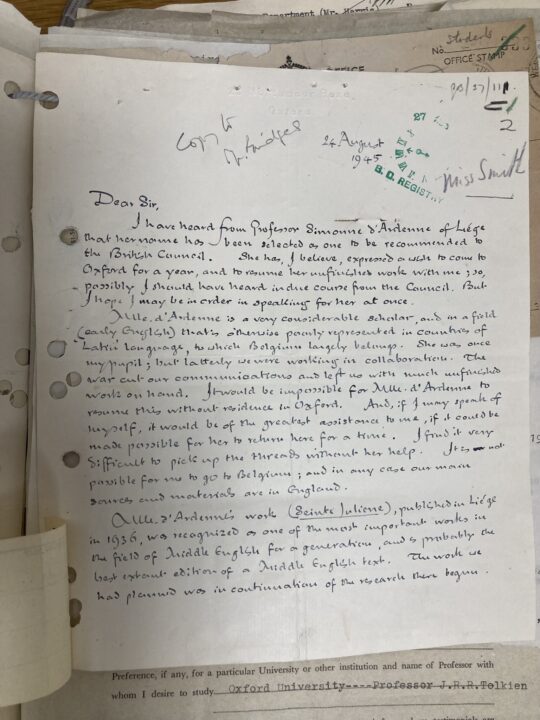 Department (Mr. Harris)
Students
No.
OFFICE STAMP
OFFICE
Oxford.
27
2
Copy to
24 August
1945
B.C. REGISTRY
Miss Smith
Dear Sir,
I have heard from Professor Simonne d'Ardenne of Liége
that her name has been selected as one to be recommended to
the British Council. She has, I believe, expressed a wish to come to
Oxford for a year, and to resume her unfinished work with me; so,
possibly I should have heard in due course from the Council. But
I hope I may be in order in speaking for her at once.
Mlle. d'Ardenne is a very considerable scholar, and in a field
(early English) that is otherwise poorly represented in countries of
'Latin' language, to which Belgium largely belongs. She was once
my pupil; but latterly we were working in collaboration. The
war cut our communications and left us with much unfinished
work on hand. It would be impossible for Mlle. d'Ardenne to
resume this without residence in Oxford. And, if I may speak of
myself, it would be of the greatest assistance to me, if it could be
made possible for her to return here for a time. I find it very
difficult to pick up the threads without her help. It is not
possible for me to go to Belgium; and in any case our main
sources and materials are in England.
Mlle. d'Ardenne's work (Seinte Juliene), published in Liége
in 1936, was recognized as one of the most important works in
the field of Middle English for a generation, and is probably the
best extant edition of a Middle English text. The work we
had planned was in continuation of the research there begun.
Preference, if any, for a particular University or other institution and name of Professor with
whom I desire to study Oxford University----Professor J.R.R.Tolkien